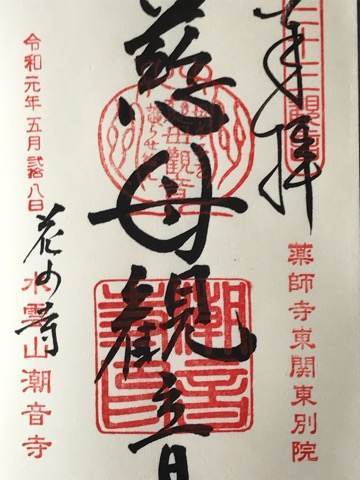 奉拝
三十三観音
薬師寺東関東別院
慈母観音
潮音
令和元年五月弐拾八日
花の寺
水雲山潮音寺